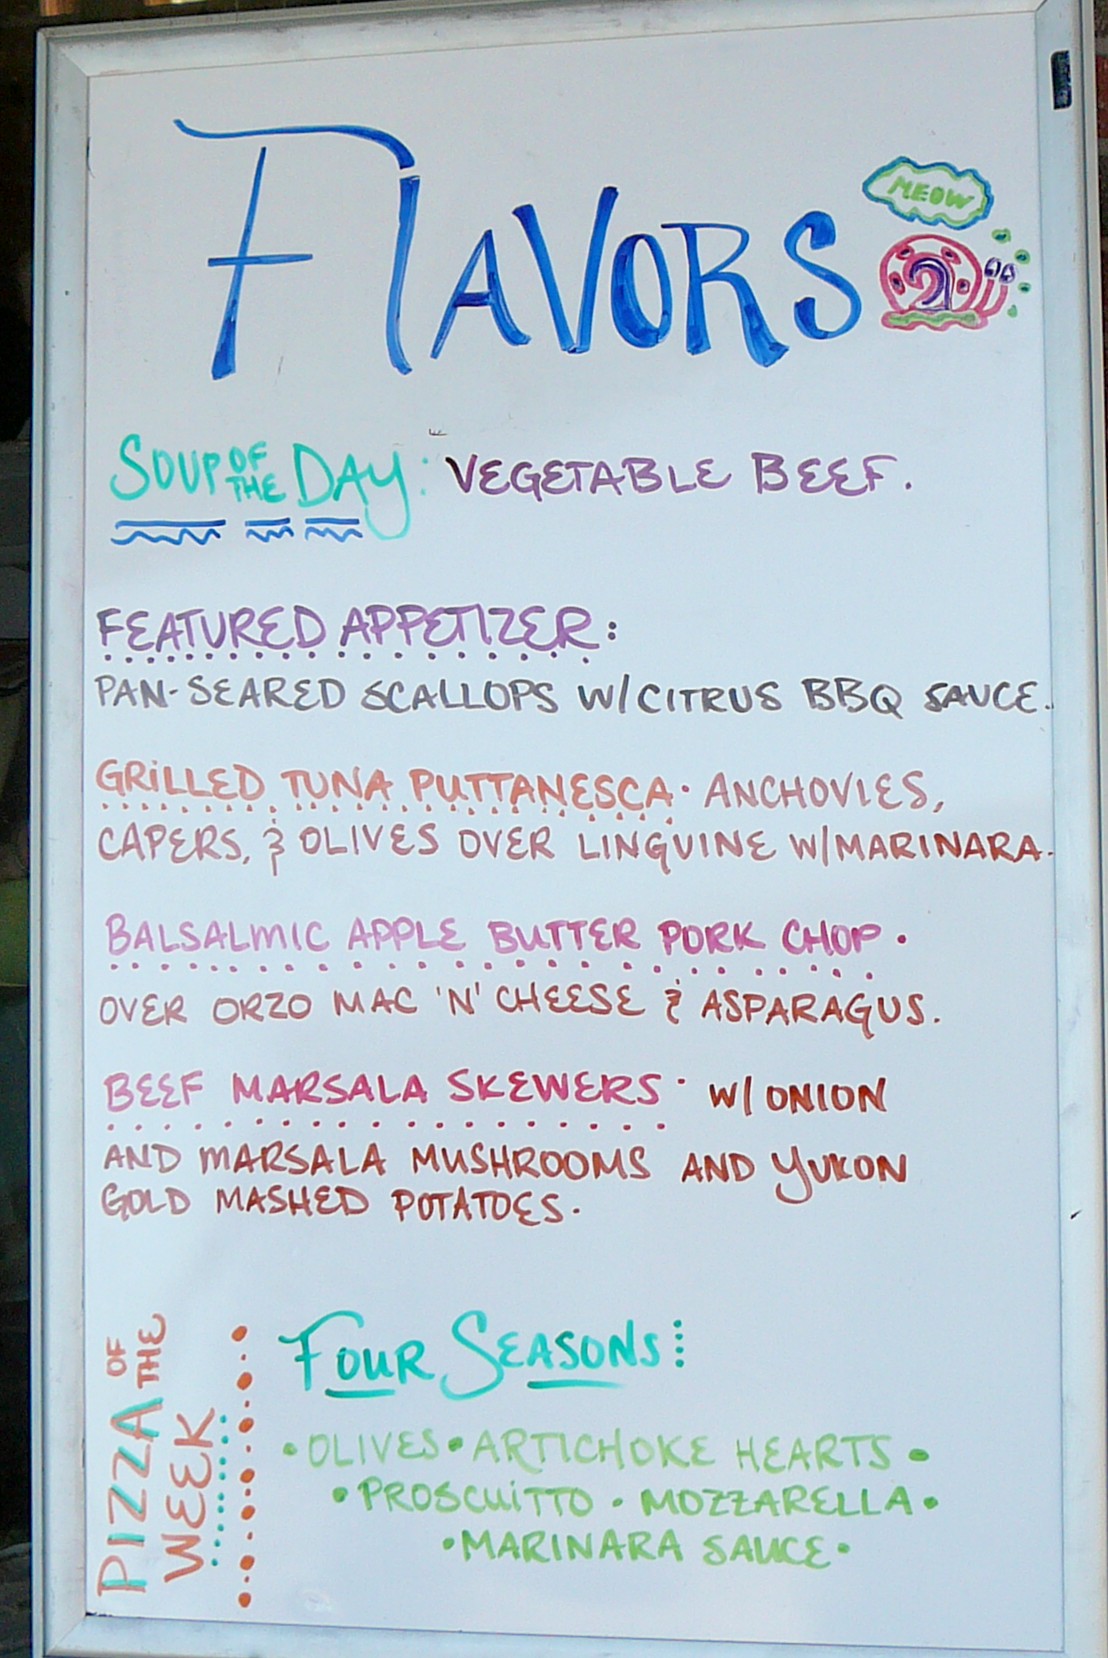 FlAVORS
MEOW
SOUP OF THE DAY: VEGETABLE BEEF.
FEATURED APPETIZER:
PAN-SEARED SCALLOPS W/CITRUS BBQ SAUCE.
GRiLLED TUNA PUTTANESCA· ANCHOVIES,
CAPERS, & OLIVES OVER LINGUINE W/MARINARA·
BALSALMIC APPLE BUTTER PORK CHOP ·
OVER ORZO MAC 'N' CHEESE & ASPARAGUS.
BEEF MARSALA SKEWERS· W/ ONION
AND MARSALA MUSHROOMS AND YUKON
GOLD MASHED POTATOES·
PIZZA OF THE
WEEK
FOUR SEASONS
•OLIVES•ARTICHOKE HEARTS •
•PROSCUiTTO • MOZZARELLA•
•MARINARA SAUCE•